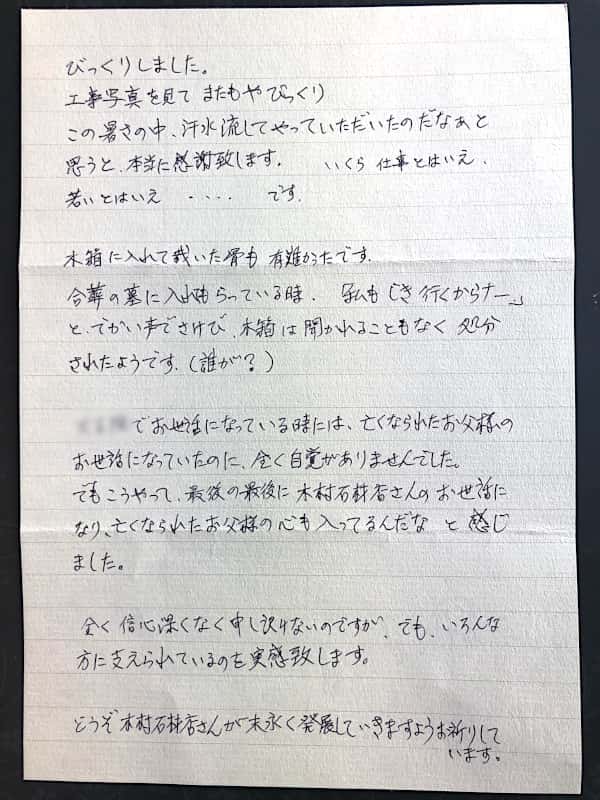 びっくりしました。
工事写真を見て またもやびっくり
この暑さの中、汗水流してやっていただいたのだなぁと
思うと、本当に感謝致します。 いくら 仕事とはいえ、
若いとはいえ ・・・・ です。
木箱に入れて戴いた骨も 有難かったです。
合葬の墓に入れてもらっている時、「私もじき行くからナー」
と、でかい声でさけび、木箱は開かれることもなく 処分
されたようです。(誰が?)
でお世話になっている時には、亡くなられたお父様の
お世話になっていたのに、全く自覚がありませんでした。
でもこうやって、最後の最後に 木村石材店さんのお世話に
なり、亡くなられたお父様の心も入ってるんだな と 感じ
ました。
全く信心深くなく申し訳ないのですが、でも、いろんな
方に支えられているのを実感致します。
どうぞ木村石材店さんが末永く発展していきますようお祈りして
います。